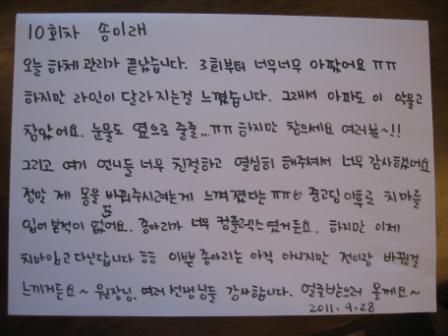 10회차 송미래
오늘 하체 관리가 끝났습니다. 3회부터 너무너무 아팠어요 ㅠㅠ
하지만 라인이 달라지는걸 느꼈습니다. 그래서 아파도 이 악물고
참았어요. 눈물도 옆으로 줄줄...ㅠㅠ 하지만 참으세요 여러분~!!
그리고 여기 언니들 너무 친절하고 열심히 해주셔서 너무 감사했어요
정말 제 몸을 바꿔주시려는게 느껴졌다는ㅠㅠ 중고딩이후로 치마를
입어본적이 없어요. 종아리가 너무 컴플렉스였거든요. 하지만 이제
치마입고 다닌답니다 ㅎㅎ 이쁜 종아리는 아직 아니지만 전이랑 바뀐걸
느끼거든요~ 원장님, 여러 선생님들 감사합니다. 얼굴받으러 올께요~
2011. 9. 28